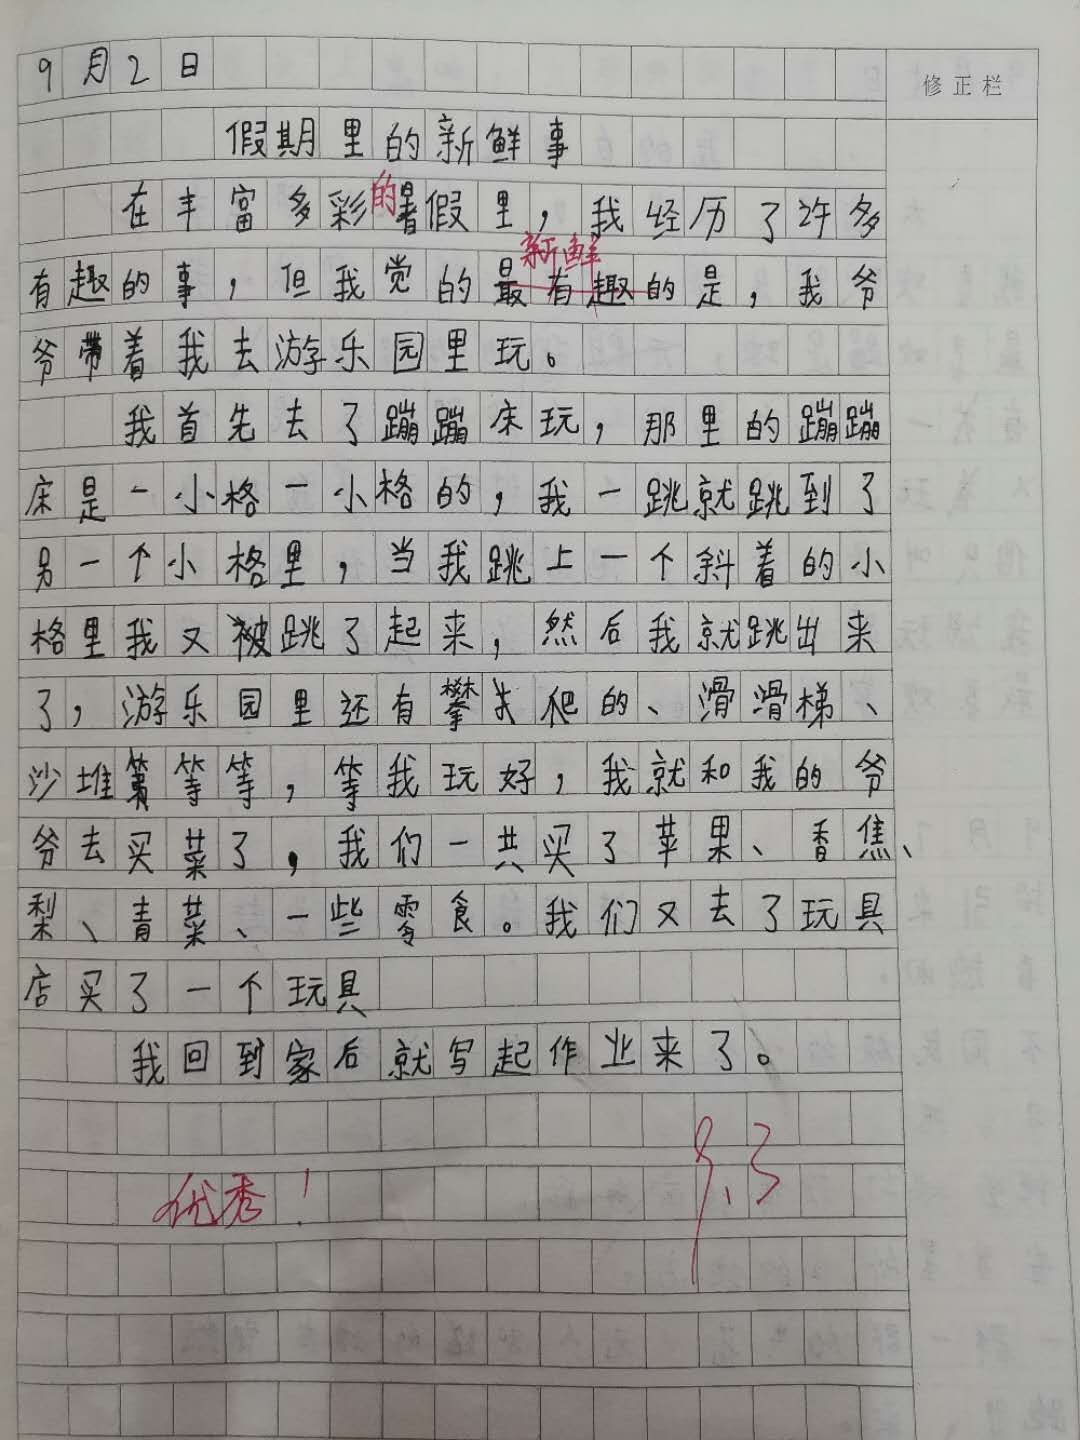 9月2日
修正栏
假期里的新鲜事
在丰富多彩的暑假里，我经历了许多
新鲜
有趣的事，但我觉的最有趣的是，我爷
爷带着我去游乐园里玩。
我首先去了蹦蹦床玩，那里的蹦蹦
床是一小格一小格的，我一跳就跳到了
另一个小格里，当我跳上一个斜着的小
格里我又被跳了起来，然后我就跳出来
了，游乐园里还有攀爬的、滑滑梯、
沙堆等等，等我玩好，我就和我的爷
爷去买菜了，我们一共买了苹果、香焦、
梨、青菜、一些零食。我们又去了玩具
店买了一个玩具
我回到家后就写起作业来了。
优秀！
9.3